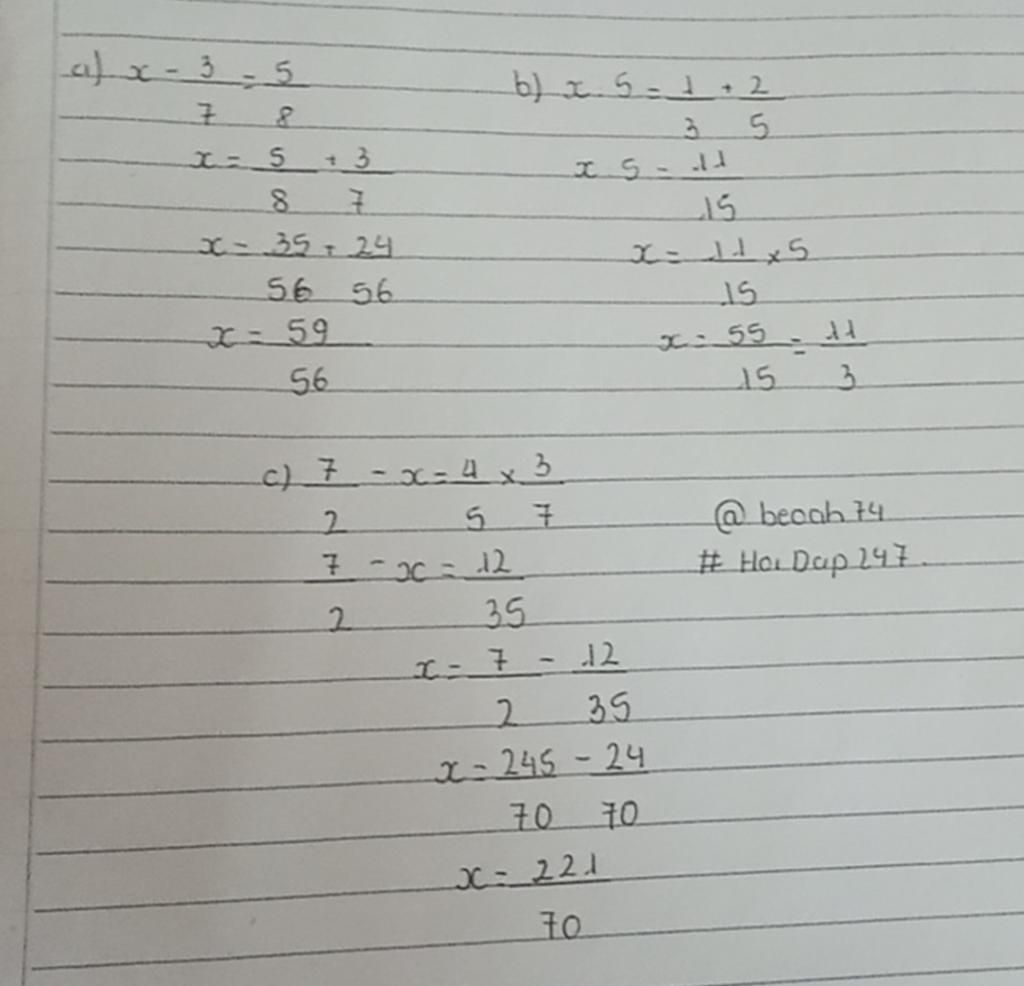 a) x - 3/7 = 5/8
x = 5/8 + 3/7
x = 35/56 + 24/56
x = 59/56
b) x . 5 = 1/3 + 2/5
x . 5 = 11/15
x = 11/15 × 5
x = 55/15 = 11/3
c) 7/2 - x = 4/5 × 3/7
7/2 - x = 12/35
x = 7/2 - 12/35
x = 245/70 - 24/70
x = 221/70
@beoah74
# HoiDap247.